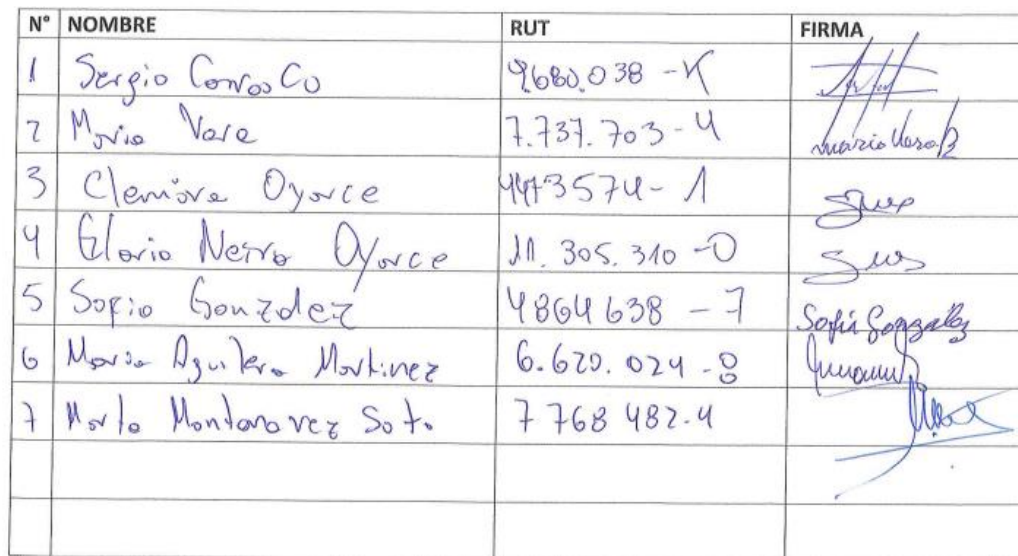 N° NOMBRE RUT FIRMA
1 Sergio Carrasco 9.680.038-K
2 Maria Vara 7.737.703-4 Maria Vara
3 Clemira Oyarce 4473574-1
4 Gloria Neira Oyarce 11.305.310-0
5 Sofia Gonzalez 4864638-7 Sofia Gonzalez
6 Maria Aguilera Martinez 6.620.024-8
7 Marta Montanarez Soto 7768482.4